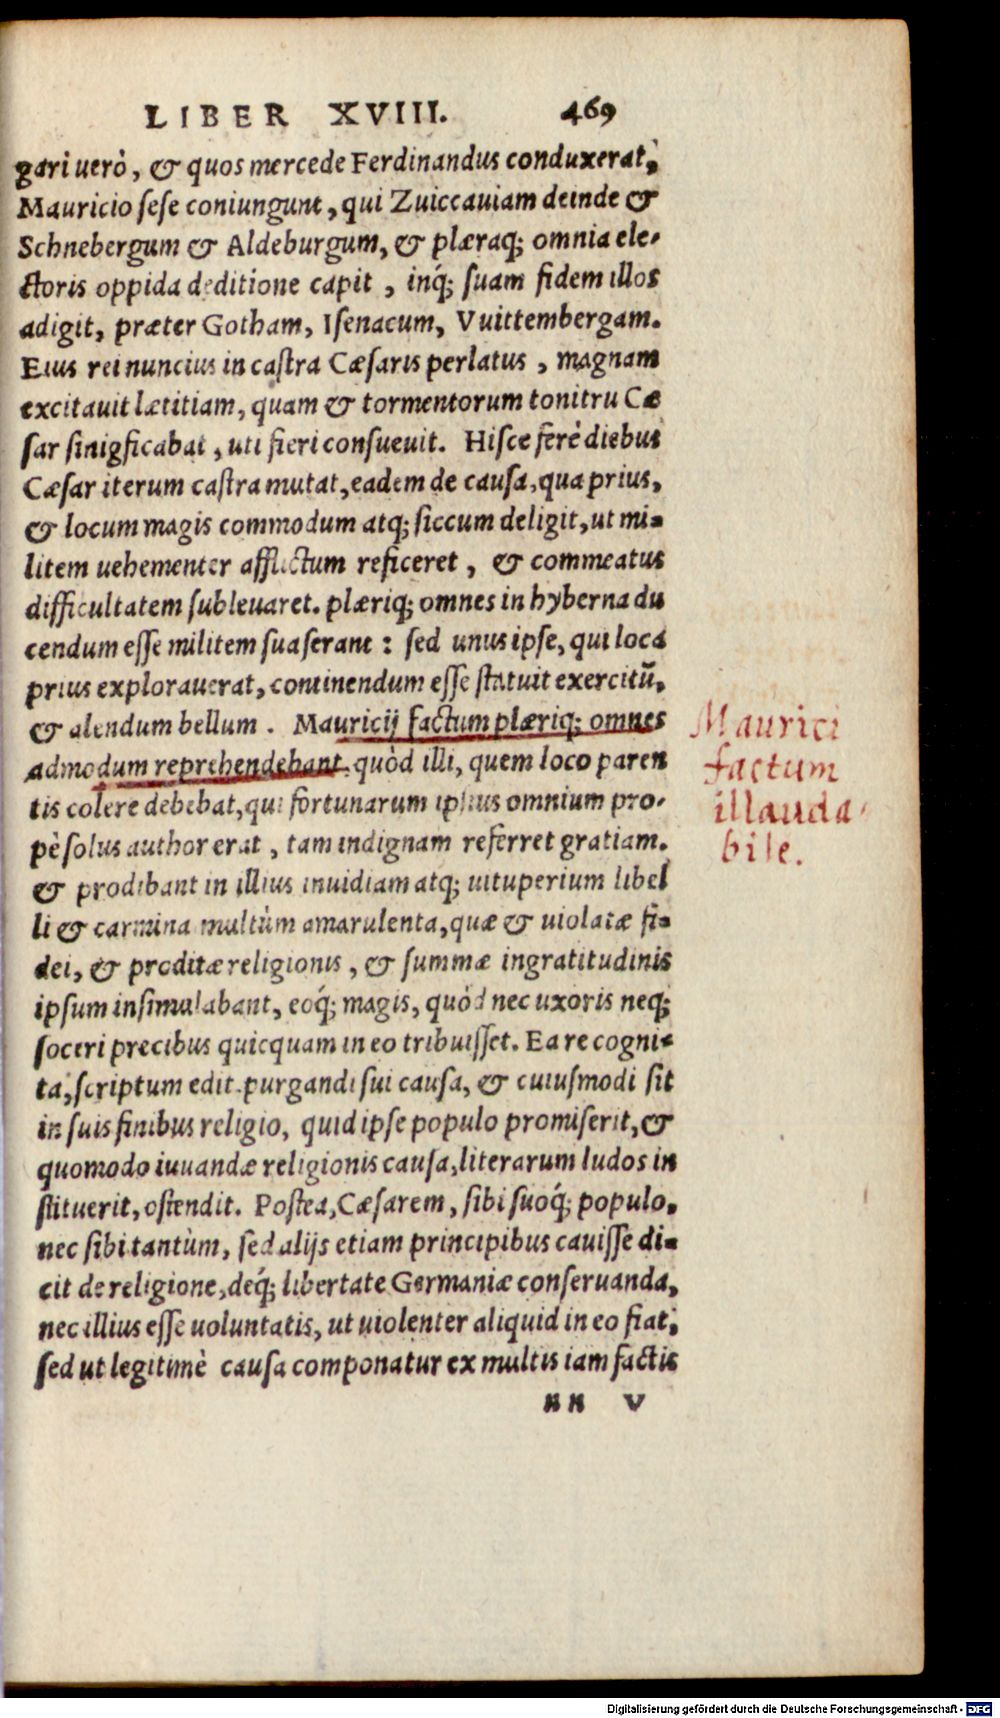 LIBER XVIII. 469
gari uerò, & quos mercede Ferdinandus conduxerat,
Mauricio sese coniungunt, qui Zuiccauiam deinde &
Schnebergum & Aldeburgum, & plæraq; omnia ele-
ctoris oppida deditione capit, inq́; suam fidem illos
adigit, præter Gotham, Isenacum, Vuittembergam.
Eius rei nuncius in castra Cæsaris perlatus, magnam
excitauit lætitiam, quam & tormentorum tonitru Cæ
sar sinigficabat, uti fieri consueuit. Hisce ferè diebus
Cæsar iterum castra mutat, eadem de causa, qua prius,
& locum magis commodum atq; siccum deligit, ut mi-
litem uehementer afflictum reficeret, & commeatus
difficultatem subleuaret. plæriq; omnes in hyberna du
cendum esse militem suaserant: sed unus ipse, qui loca
prius explorauerat, continendum esse statuit exercitũ,
& alendum bellum. Mauricij factum plæriq; omnes
admodum reprehendebant, quòd illi, quem loco paren
tis colere debebat, qui fortunarum ipsius omnium pro-
pè solus author erat, tam indignam referret gratiam.
& prodibant in illius inuidiam atq; uituperium libel
li & carmina multùm amarulenta, quæ & uiolatæ fi-
dei, & proditæ religionis, & summæ ingratitudinis
ipsum insimulabant, eoq́; magis, quòd nec uxoris neq;
soceri precibus quicquam in eo tribuisset. Ea re cogni-
ta, scriptum edit purgandi sui causa, & cuiusmodi sit
in suis finibus religio, quid ipse populo promiserit, &
quomodo iuuandæ religionis causa, literarum ludos in
stituerit, ostendit. Postea, Cæsarem, sibi suoq́; populo,
nec sibi tantùm, sed alijs etiam principibus cauisse di-
cit de religione, deq́; libertate Germaniæ conseruanda,
nec illius esse uoluntatis, ut uiolenter aliquid in eo fiat,
sed ut legitimè causa componatur ex multis iam factis
nn v
Maurici
factum
illauda-
bile.
Digitalisierung gefördert durch die Deutsche Forschungsgemeinschaft - DFG